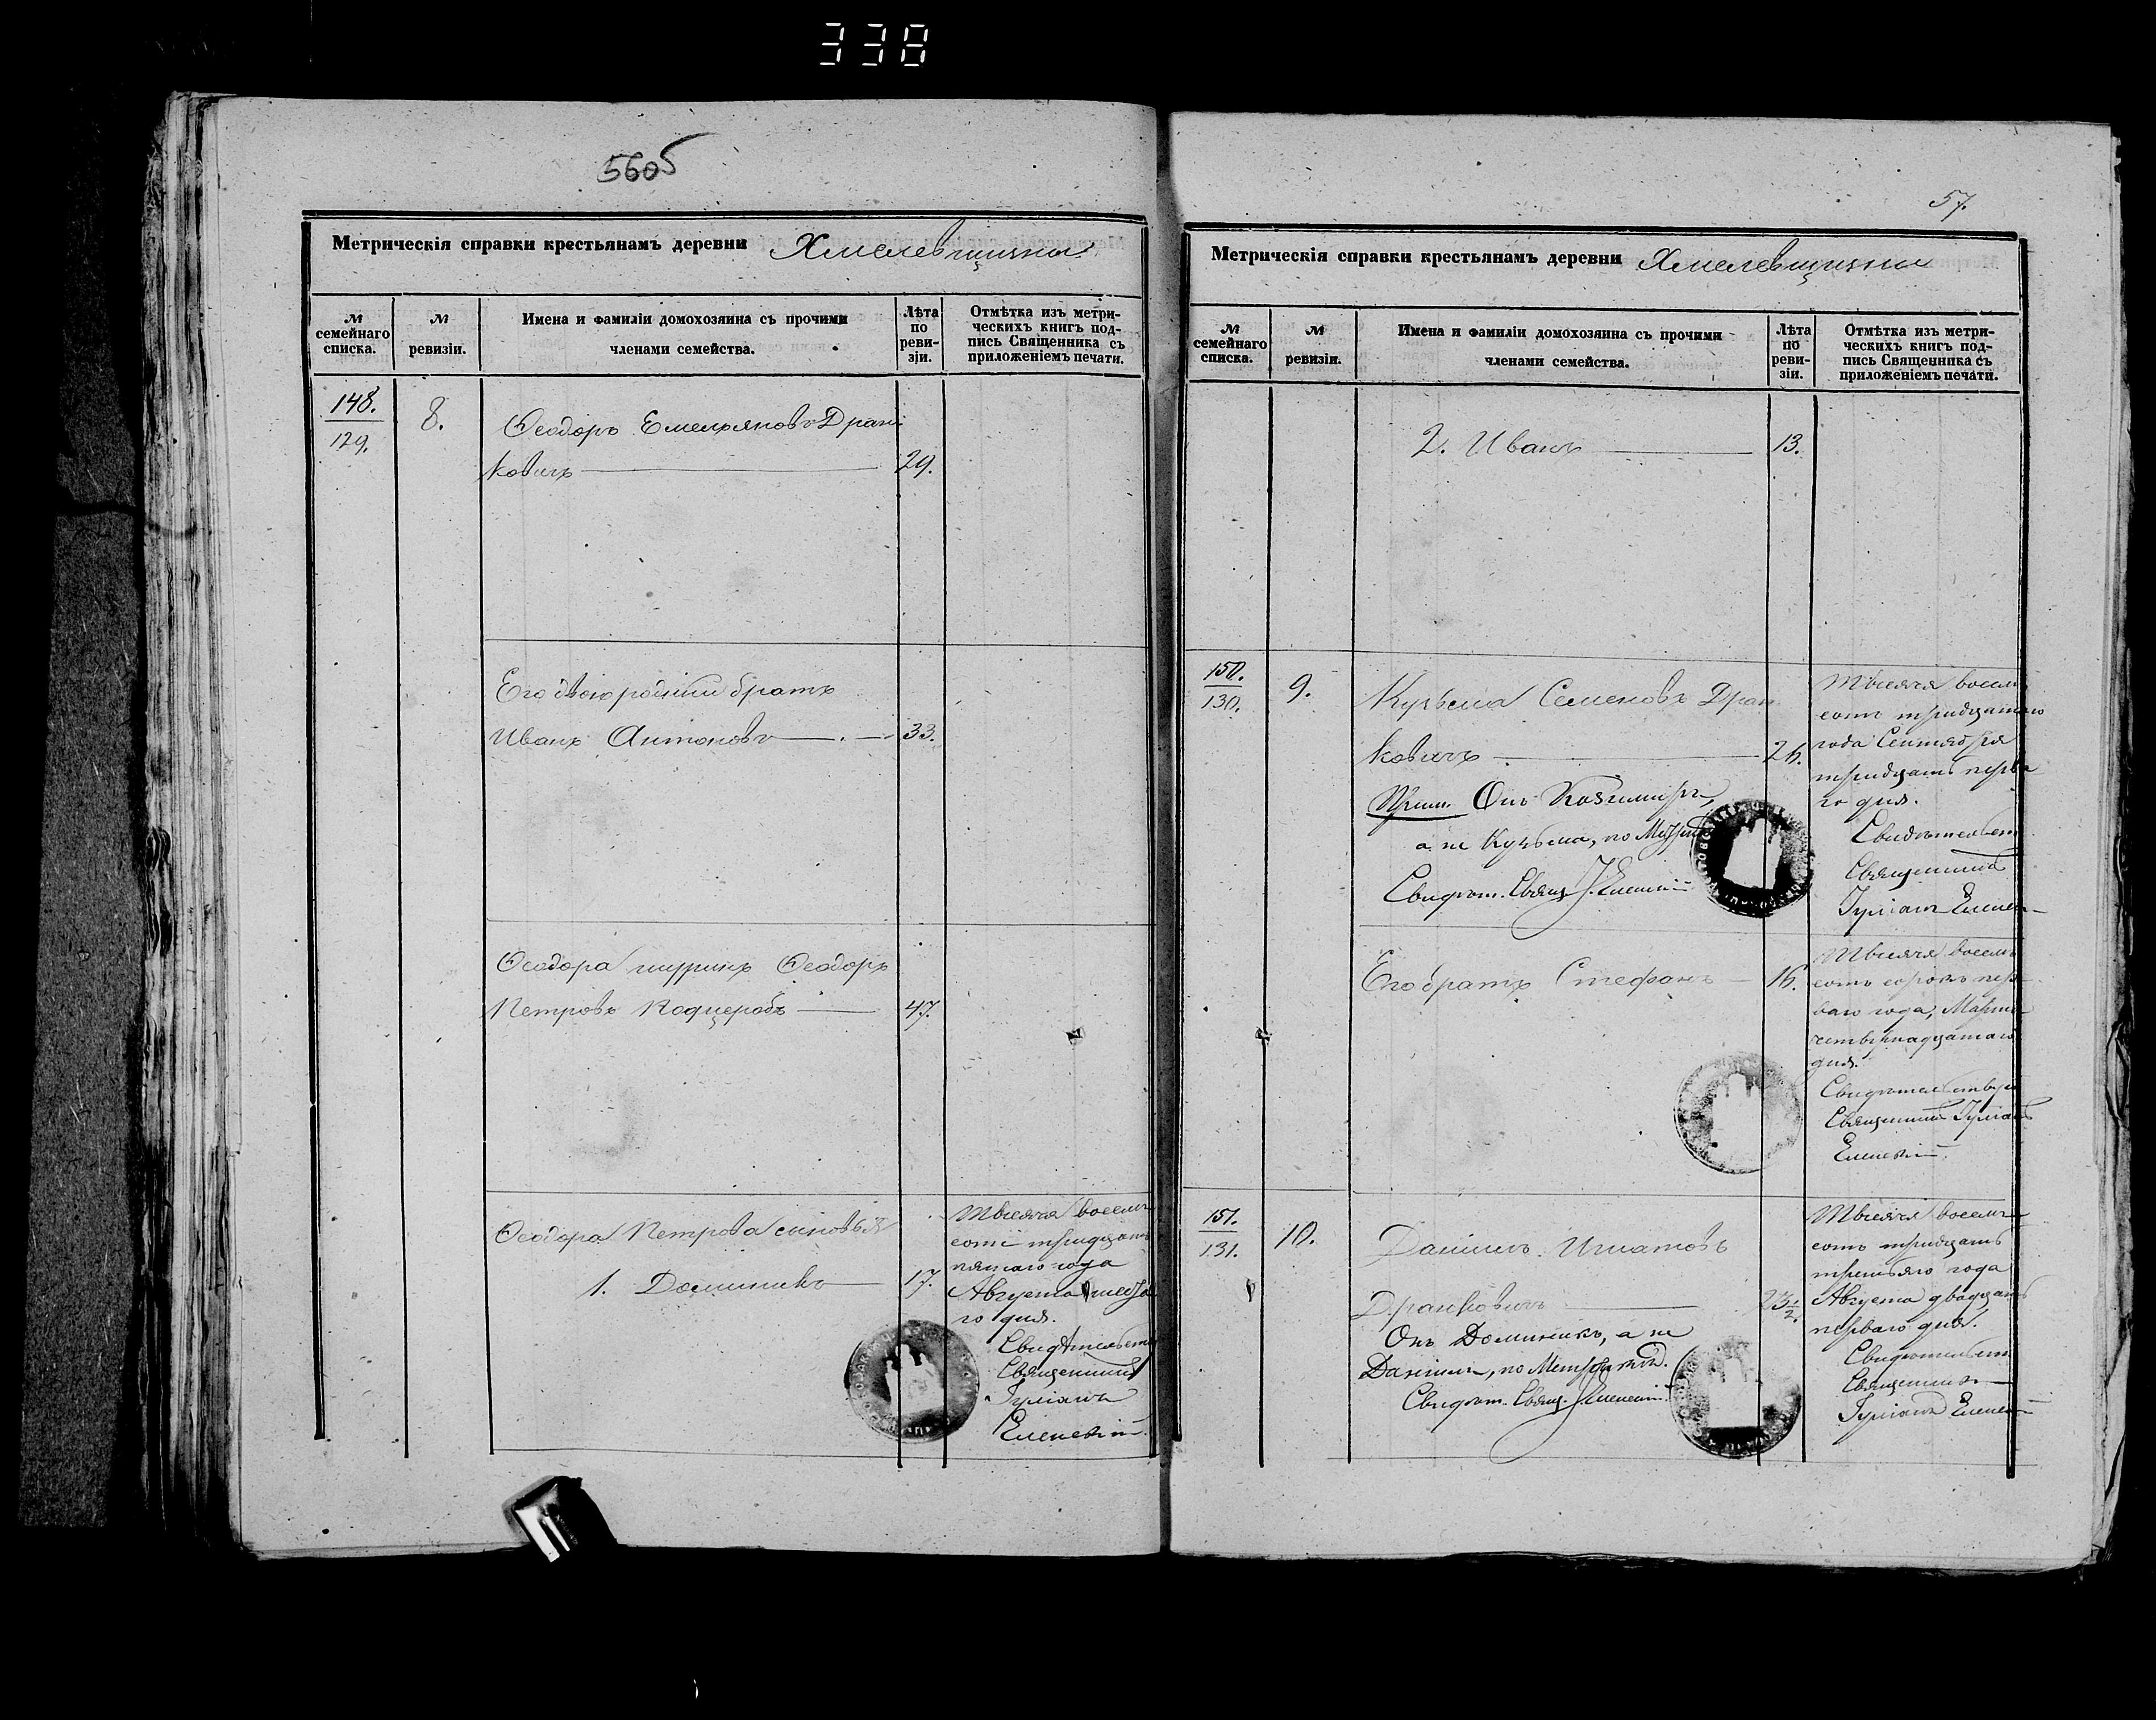 338
56об
Метрическія справки крестьянамъ деревни Хмелевщизны
№ семейнаго списка.
№ ревизіи.
Имена и фамиліи домохозяина съ прочими
членами семейства.
Лѣта по ревизіи.
Отмѣтка изъ метри-
ческихъ книгъ под-
пись Священника съ
приложеніемъ печати.
148.
129.
8.
Ѳеодоръ Емельяновъ Дран
ковичъ 29.
Его двоюродный братъ
Иванъ Антоновъ 33.
Ѳеодора шуринъ Ѳеодоръ
Петровъ 47.
Ѳеодора Петрова сыновья
1. Доминикъ 17.
Тысяча восемь
сотъ тридцать
пятаго года
Августа
го дня.
Свидѣтельст
Священникъ
Іуліанъ
57.
Метрическія справки крестьянамъ деревни Хмелевщизны
№ семейнаго списка.
№ ревизіи.
Имена и фамиліи домохозяина съ прочими
членами семейства.
Лѣта по ревизіи.
Отмѣтка изъ метри-
ческихъ книгъ под-
пись Священника съ
приложеніемъ печати.
2. Иванъ 13.
150.
130.
9.
Кузьма Семеновъ Дран
ковичъ 26.
Прим. Онъ Казимиръ,
а не Кузьма, по
Свидѣт. Свящ.
Тысяча восемь
сотъ тридцатаго
года Сентября
тридцать перва
го дня.
Свидѣтельст
Священникъ
Іуліанъ
Его братъ Стефанъ 16.
Тысяча восемь
сотъ сорокъ пер
ваго года, Марта
четырнадцатаго
дня.
Свидѣтельству
Священникъ Іуліанъ
151.
131.
10.
Даніилъ Игнатовъ
Дранковичъ 23 1/2.
Онъ Доминикъ, а не
Даніилъ, по
Свидѣт. Свящ.
Тысяча восемь
сотъ тридцать
третьяго года
Августа двадцать
перваго дня.
Свидѣтельст
Священникъ
Іуліанъ